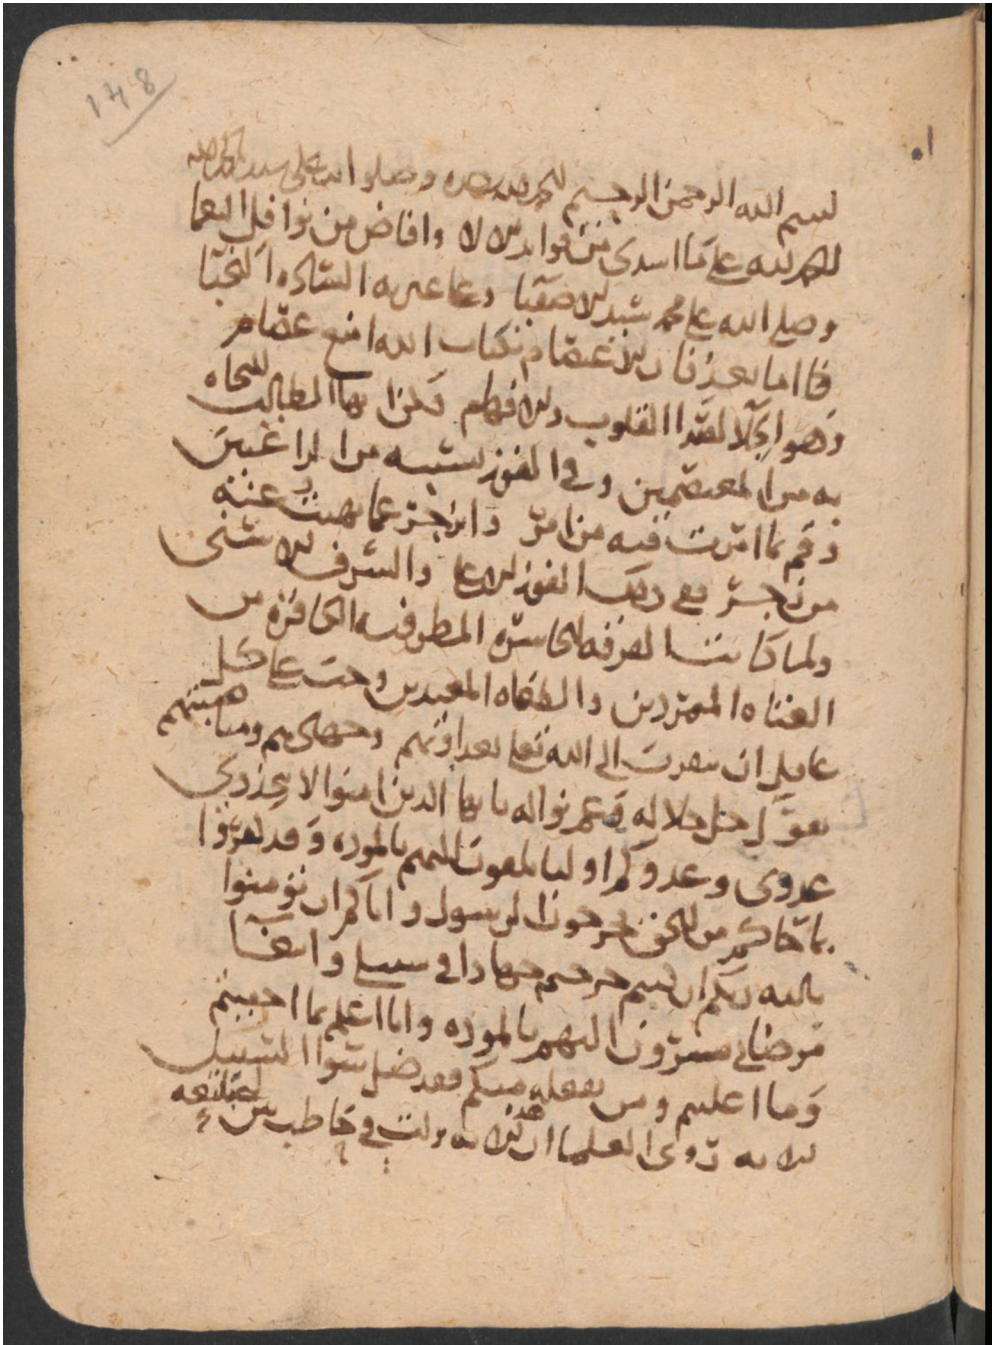 ١٤٨
بسم الله الرحمن الرحيم الحمد لله وحده وصلواته على سيدنا
الحمد لله على ما اسدى من فوايد الالا وافاض من نوافل النعما
وصلى الله على محمد سيد الاصفيا وعلى عترته الساده النجبا
فا اما بعد فان الاعتصام بكتاب الله امنع عصام
وهو اجلا لصدا القلوب والافهام
به من المعتصمين وفي الفوز بسببه من الراغبين
وقم بما امرت فيه من امر وانزجر عما نهيت عنه
من زجر فهو الفوز الاعلى والشرف الاسنى
ولما كانت الفرقه الخاسره المطرفيه الكافره من
العتاه المتمردين والطغاه المعتدين وجب على كل
عاقل ان يتقرب الى الله تعالى بعداوتهم وجهادهم ومباينتهم
بقول جل جلاله وعم نواله يا ايها الذين امنوا لا تتخذوا
عدوى وعدوكم اوليا تلقون اليهم بالموده وقد كفروا
بما جاكم من الحق يخرجون الرسول واياكم ان تؤمنوا
بالله ربكم ان كنتم خرجتم جهادا في سبيلى وابتغا
مرضاتي تسرون اليهم بالموده وانا اعلم بما اخفيتم
وما اعلنتم ومن يفعله منكم فقد ضل سوا السبيل
الايه روى العلما ان هذه الايه نزلت في حاطب بن ابي بلتعه